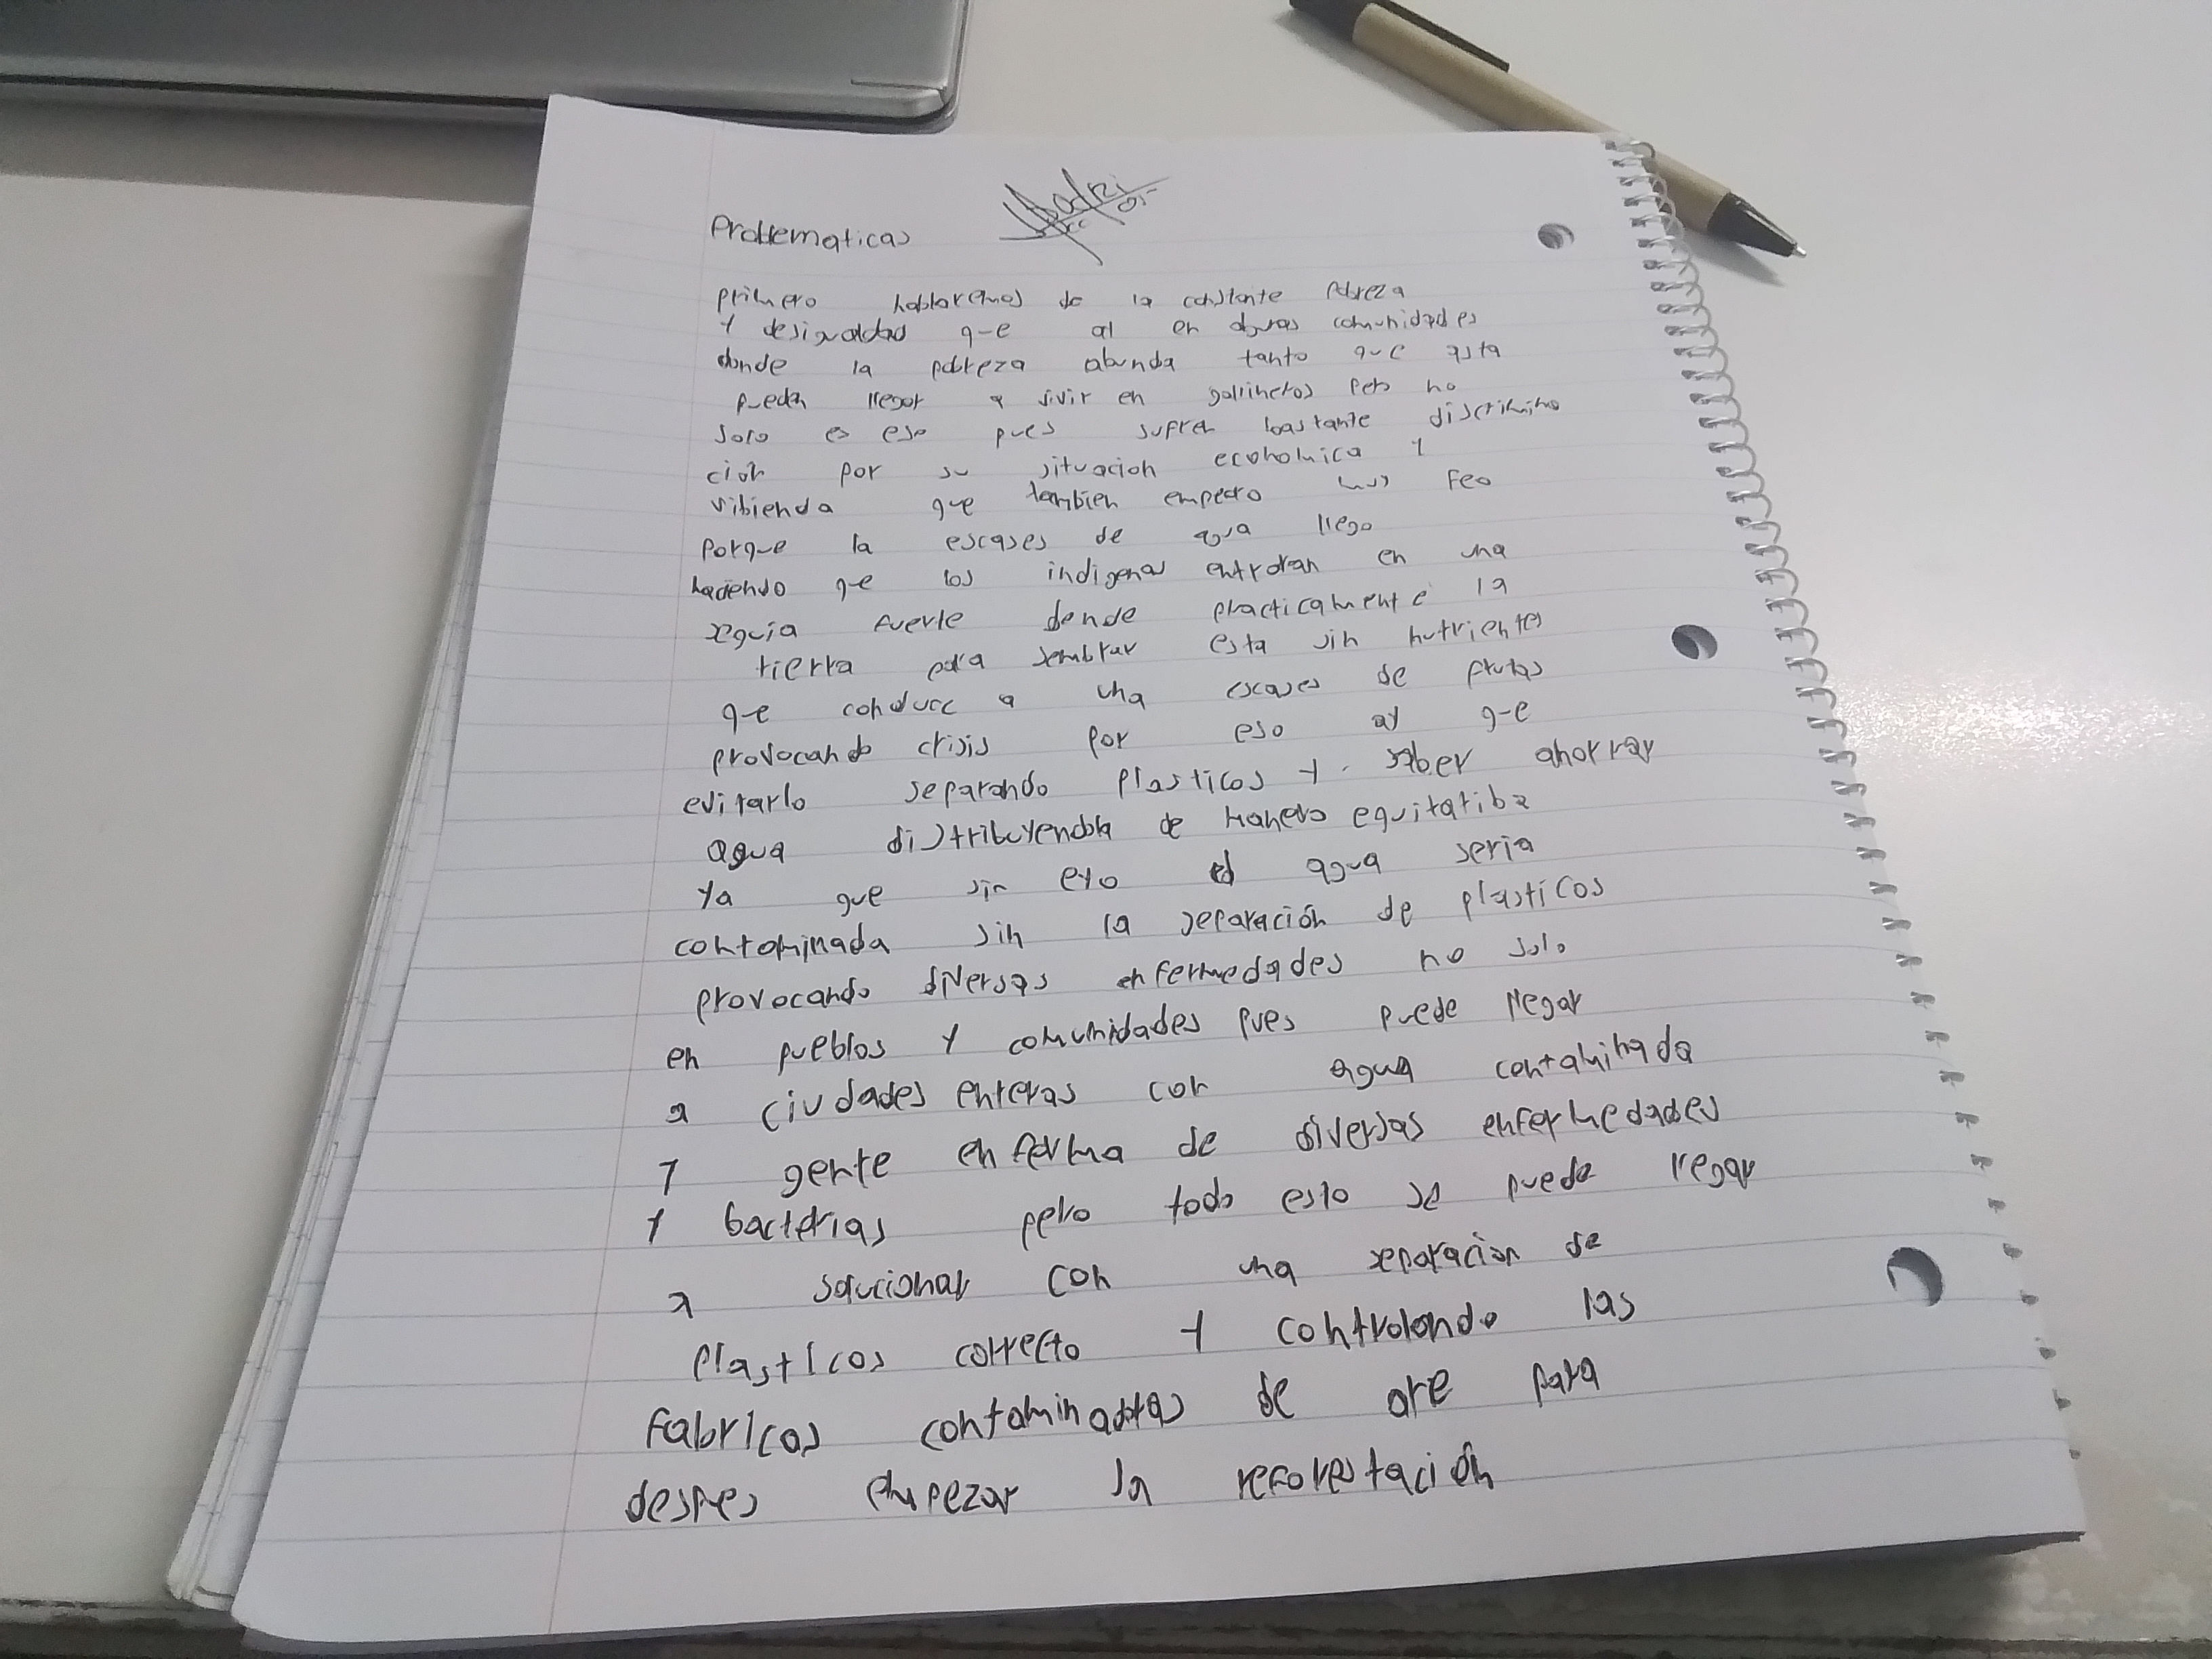 Problematicas
primero hablaremos de la constante pobreza
y desigualdad que al en algunas comunidades
donde la pobreza abunda tanto que asta
pueden llegar a vivir en gallineros pero no
solo es eso pues sufren bastante discrimina
ción por su situacion economica y
vibienda que tambien empeoro mas feo
porque la escases de agua llego
haciendo que los indigenas entraran en una
sequia fuerte donde practicamente la
tierra para sembrar esta sin nutrientes
que conduce a una escases de frutas
provocando crisis por eso ay que
evitarlo separando plasticos y saber ahorrar
agua distribuyendola de manera equitatiba
ya que sin eyo el agua seria
contaminada sin la separación de plasticos
provocando diversas enfermedades no solo
en pueblos y comunidades pues puede llegar
a ciudades enteras con agua contaminada
y gente enferma de diversas enfermedades
y bacterias pero todo esto se puede llegar
a solucionar con una separacion de
plasticos correcto y controlando las
fabricas contaminadoras de are para
despues empezar la reforestación